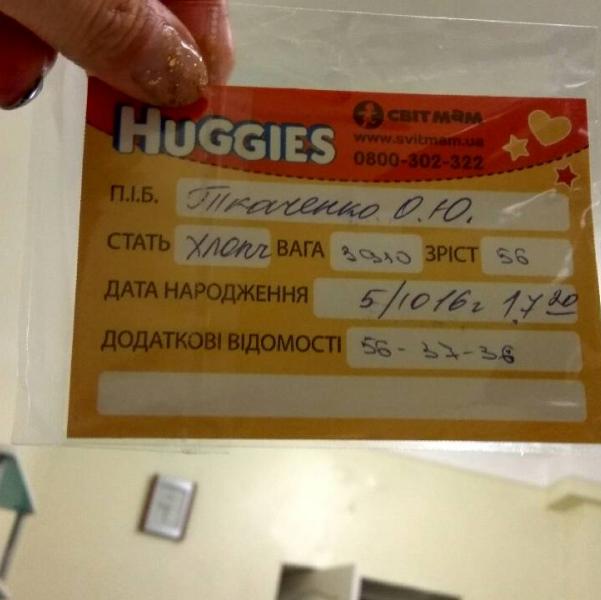 HUGGIES
СВІТ МАМ
www.svitmam.ua
0800-302-322
П.І.Б. Ткаченко О.Ю.
СТАТЬ хлопч ВАГА 3910 ЗРІСТ 56
ДАТА НАРОДЖЕННЯ 5/10 16г 17 20
ДОДАТКОВІ ВІДОМОСТІ 56-37-36